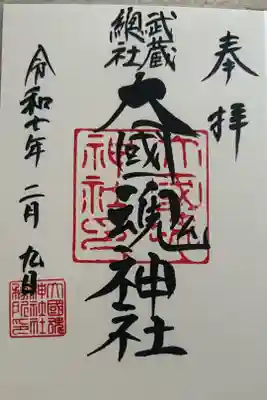 奉拝
武蔵
總社
大國魂神社
令和七年二月九日
大國魂
神社印
大國魂
神社社
務所印